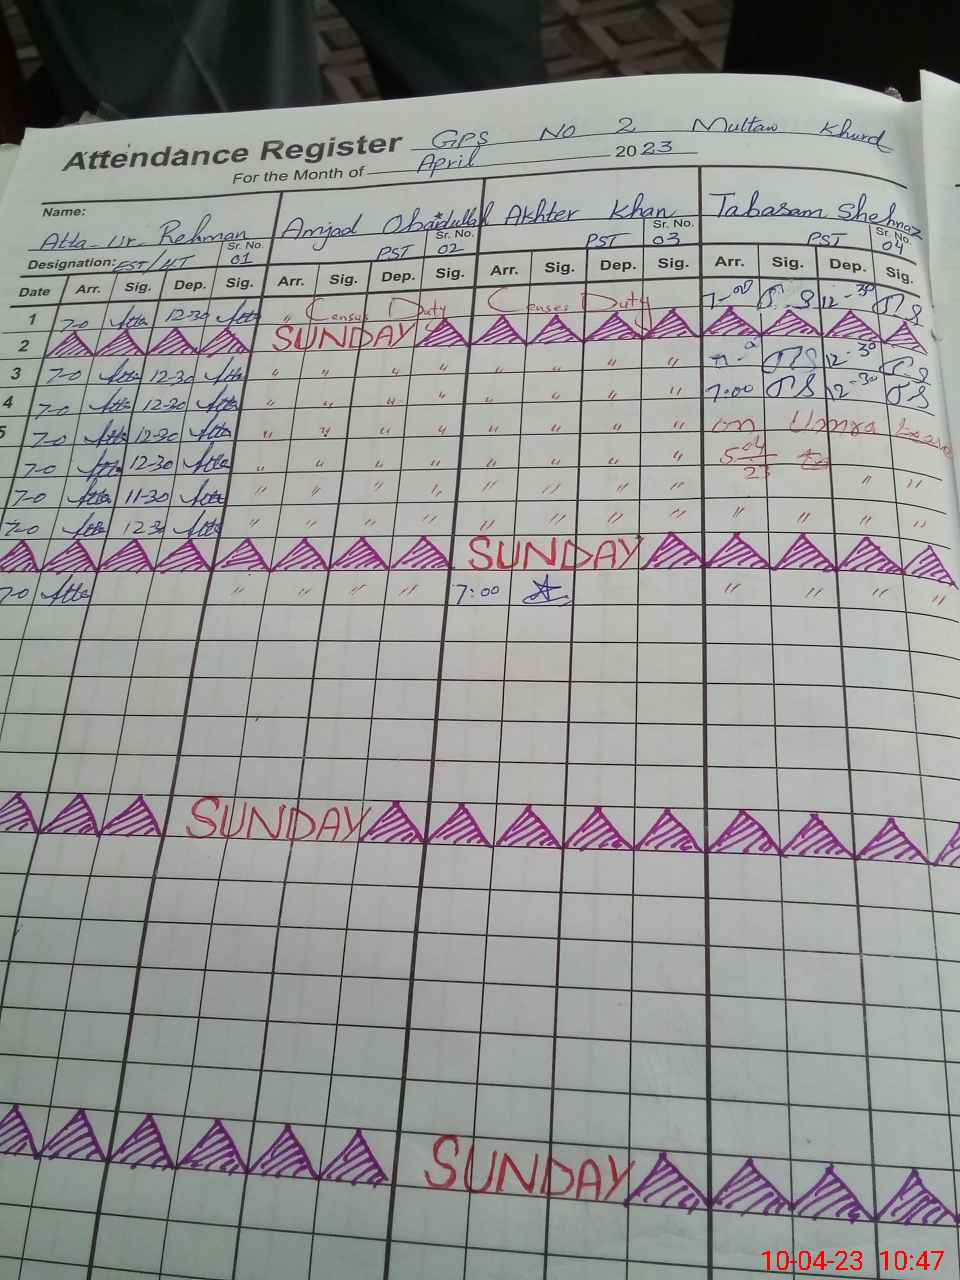 Attendance Register GPS No 2 Multan Khurd
For the Month of April 2023
Name: Atta-ur-Rehman Amjad Obaidullah Akhter Khan Tabasam Shehnaz
Designation: EST/HT Sr. No. 01 PST Sr. No. 02 PST Sr. No. 03 PST Sr. No. 04
Date Arr. Sig. Dep. Sig. Arr. Sig. Dep. Sig. Arr. Sig. Dep. Sig. Arr. Sig. Dep. Sig.
1 7-0 Atta 12-30 Atta " Census Duty Censes Duty 7-00 T.S 12-30 TS
2 SUNDAY
3 7-0 Atta 12-30 Atta " " " " " " " " TS 12-30 TS
4 7-0 Atta 12-30 Atta " " " " " " " " 7:00 TS 12-30 TS
5 7-0 Atta 12-30 Atta " " " " " " " " on Umra Leave
7-0 Atta 12-30 Atta " " " " " " " " 5 04/23 to
7-0 Atta 11-30 Atta " " " " " " " " " "
7-0 Atta 12-3 Atta " " " " " " " " " " " "
SUNDAY
7-0 Atta " " " " 7:00 " " " "
SUNDAY
SUNDAY
10-04-23 10:47